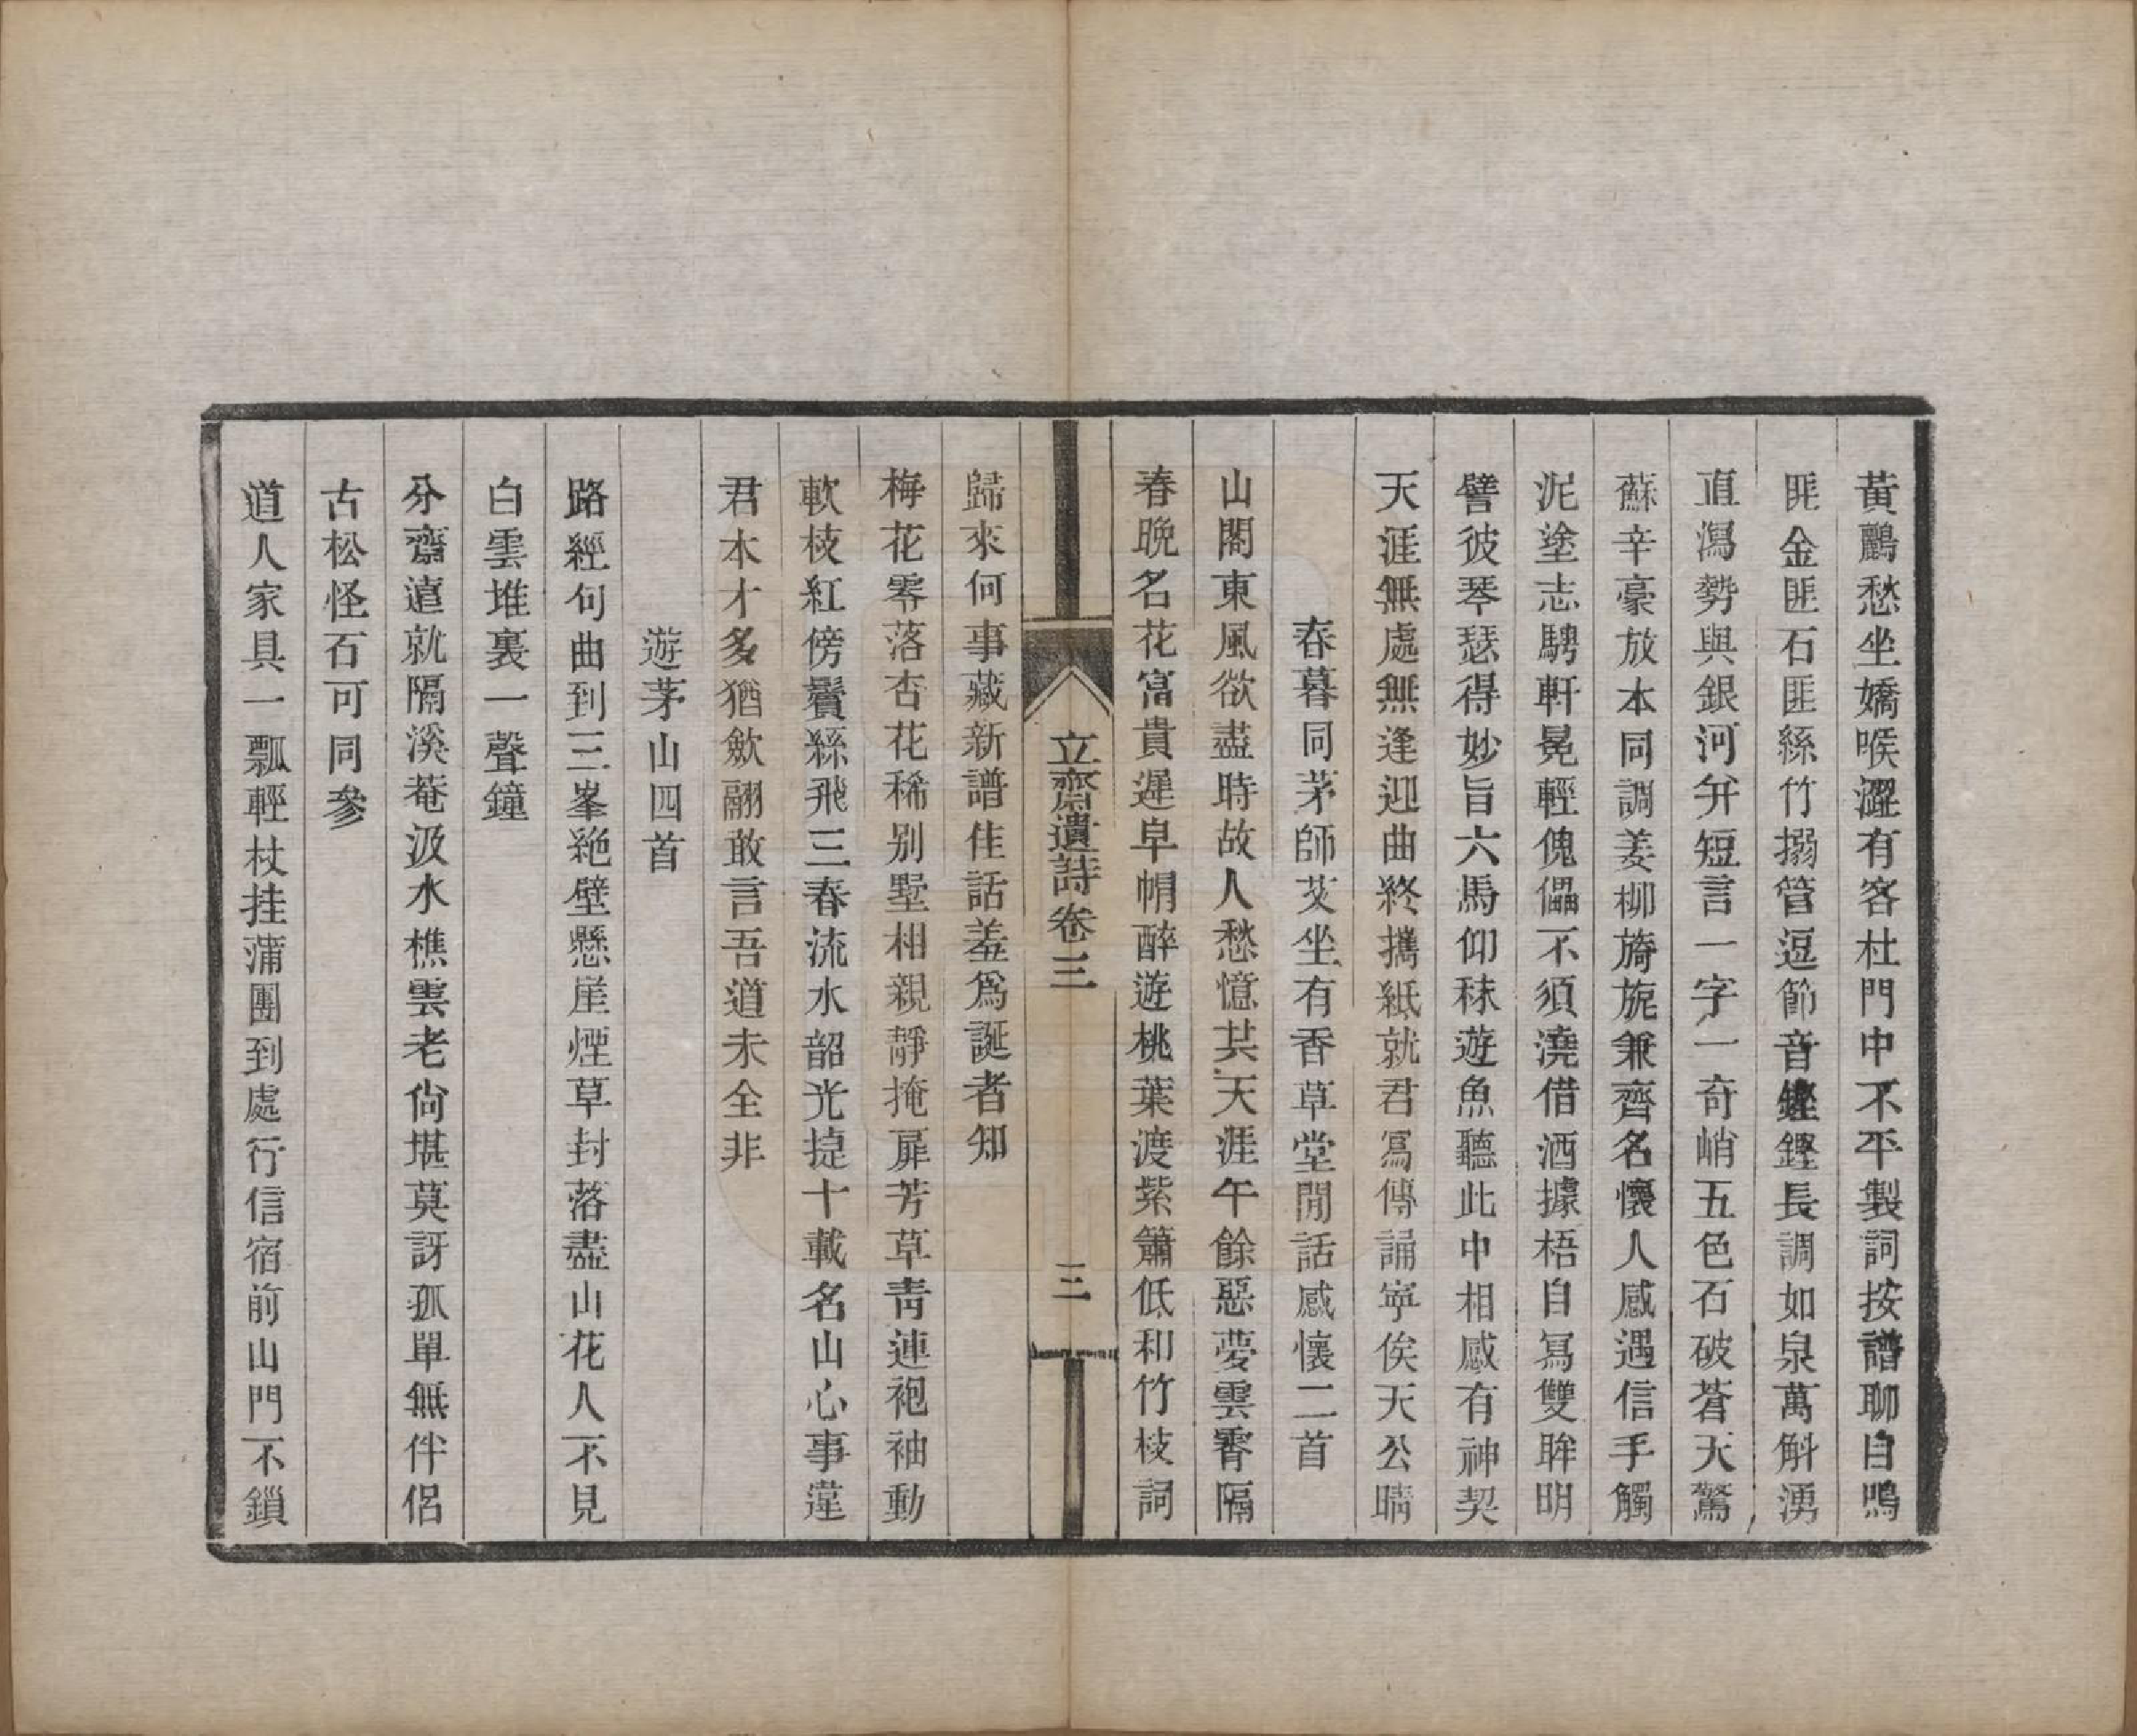 黃鸝愁坐嬌喉澀有客杜門中不平製詞按譜聊自鳴
匪金匪石匪絲竹搦管逗節音鏗鏗長調如泉萬斛湧
直瀉勢與銀河弁短言一字一奇峭五色石破蒼天驚
蘇辛豪放本同調姜柳旖旎兼齊名懷人感遇信手觸
泥塗志騁軒冕輕傀儡不須澆借酒據梧自寫雙眸明
譬彼琴瑟得妙旨六馬仰秣遊魚聽此中相感有神契
天涯無處無逢迎曲終攜紙就君寫傳誦寧俟天公晴
春暮同茅師艾坐有香草堂閒話感懷二首
山閣東風欲盡時故人愁憶其天涯午餘惡夢雲香隔
春晚名花富貴遲皁帽醉遊桃葉渡紫簫低和竹枝詞
立齋遺詩卷三
三
歸來何事藏新譜佳話羞爲誕者知
梅花零落杏花稀別墅相親靜掩扉芳草靑連袍袖動
軟枝紅傍鬢絲飛三春流水韶光㨗十載名山心事違
君本才多猶歛翮敢言吾道未全非
遊茅山四首
路經句曲到三峯絶壁懸崖煙草封落盡山花人不見
白雲堆裏一聲鐘
分齋遠就隔溪菴汲水樵雲老尙堪莫訝孤單無伴侶
古松怪石可同參
道人家具一瓢輕杖挂蒲團到處行信宿前山門不鎖